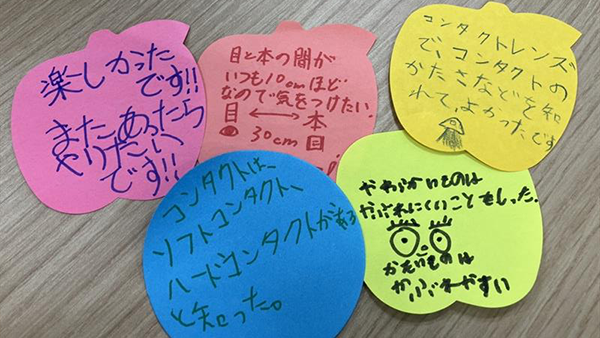 楽しかった
です!!
また、あったら
やりたい
です!!
目と本の間が
いつも10cmほど
なので気をつけたい
目 ↔ 本
30cm
コンタクトレンズ
で、コンタクトの
かたさなどを知
れて、よかったです
コンタクトは、
ソフトコンタクト、
ハードコンタクトがある
と知った。
やわらかいものは
やぶれにくいこともしった。
かたいものは